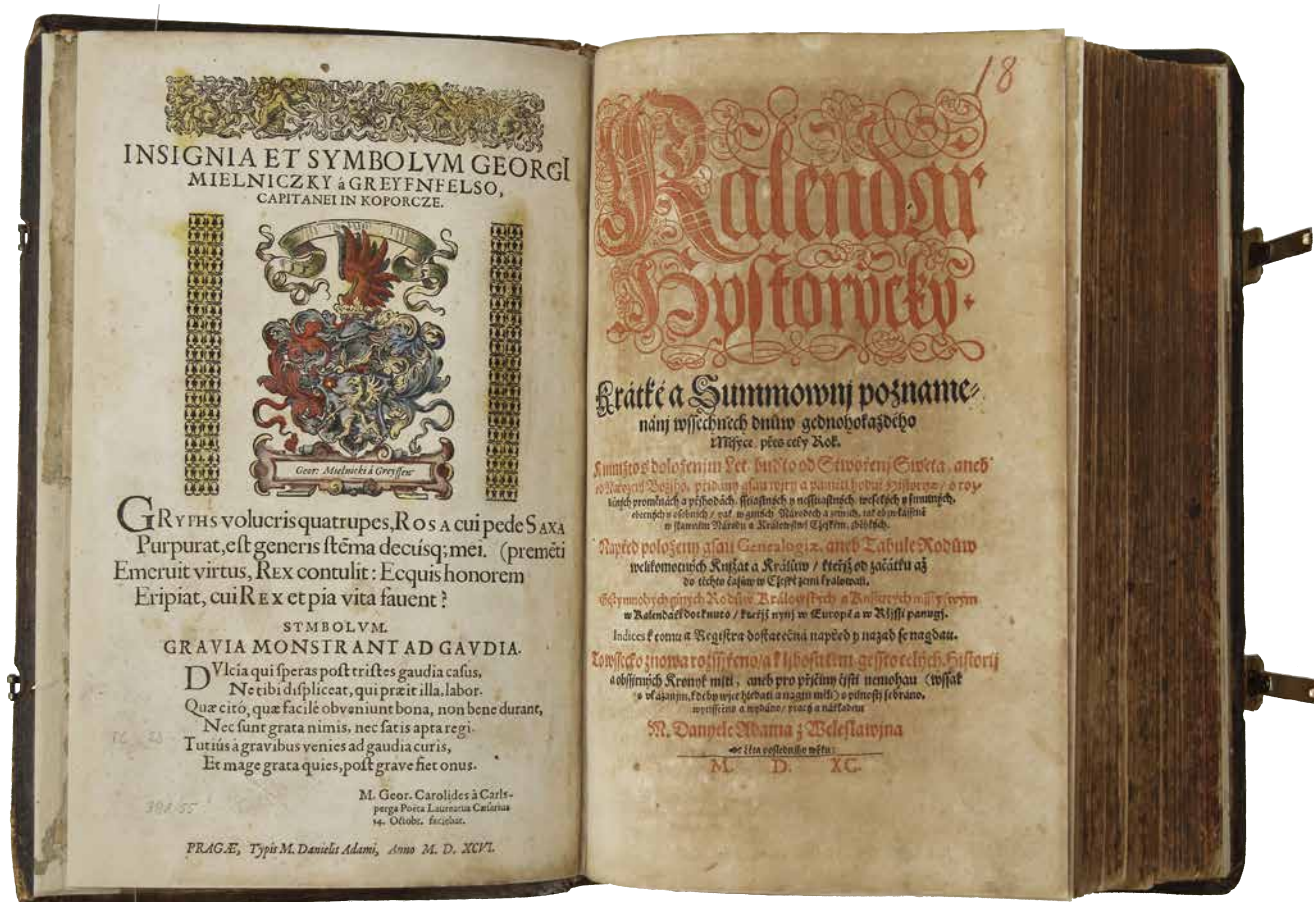 INSIGNIA ET SYMBOLVM GEORGI
MIELNICZKY à GREYFNFELSO,
CAPITANEI IN KOPORCZE.
Geor: Mielnicki á Greyffen
GRYPHS volucris quatrupes, ROSA cui pede SAXA
Purpurat, eſt generis ſtẽma decúsq; mei. (premẽti
Emeruit virtus, REX contulit: Ecquis honorem
Eripiat, cui REX et pia vita fauent?
SYMBOLVM.
GRAVIA MONSTRANT AD GAVDIA.
DVlcia qui ſperas poſt triſtes gaudia caſus,
Ne tibi diſpliceat, qui præit illa, labor.
Quæ citó, quæ facilé obveniunt bona, non bene durant,
Nec ſunt grata nimis, nec ſatis apta regi.
Tutiús à gravibus venies ad gaudia curis,
Et mage grata quies, poſt grave fiet onus.
M. Geor. Carolides à Carls-
perga Poëta Laureatus Cæſarius
14. Octobr. faciebat.
PRAGÆ, Typis M. Danielis Adami, Anno M. D. XCVI.
18
Kalendar
Hyſtorycky.
Krátké a Summownj pozname⸗
nánj wſſechněch dnůw gednohokaždého
Měſyce, přes celý Rok.
K nimžto s doloženjm Let, buďto od Stwořenj Swěta, aneb
od Narozenj Božjho, přidány gſau wjry a paměti hodné Hiſtoryæ, o roz⸗
ličných proměnách a přjhodách, ſſťaſtných y neſſťaſtných, weſelých y ſmutných,
obecných y oſobných, yak w giných Národech a zemjch, tak obzwláſſtně
w ſlawném Národu a Králowſtwj Cžeſkém, zběhlých.
Napřed položeny gſau Genealogiæ, aneb Tabule Rodůw
welikomocných Knjžat a Králůw, kteřjž od začátku až
do těchto čaſůw w Cžeſké zemi kralowali.
w Kalendáři dotknuto, kteřjž nynj w Európě a w Ržjſſi panugj.
Indices k tomu a Regiſtra doſtatečná napřed y nazad ſe nagdau.
To wſſecko znowa rozſſjřeno, a k ljboſti těm, genſſto celých Hiſtorij
a obſſjrných Kronyk mjti, aneb pro přjčiny čjſti nemohau (wſſak
s vkázanjm, kdeby wjce hledati a nagjti měli) s pilnoſtj ſebráno,
wytiſſtěno a wydáno, pracý a nákladem
M. Danyele Adama z Weleſlawjna
Léta poſlednjho wěku:
M. D. XC.